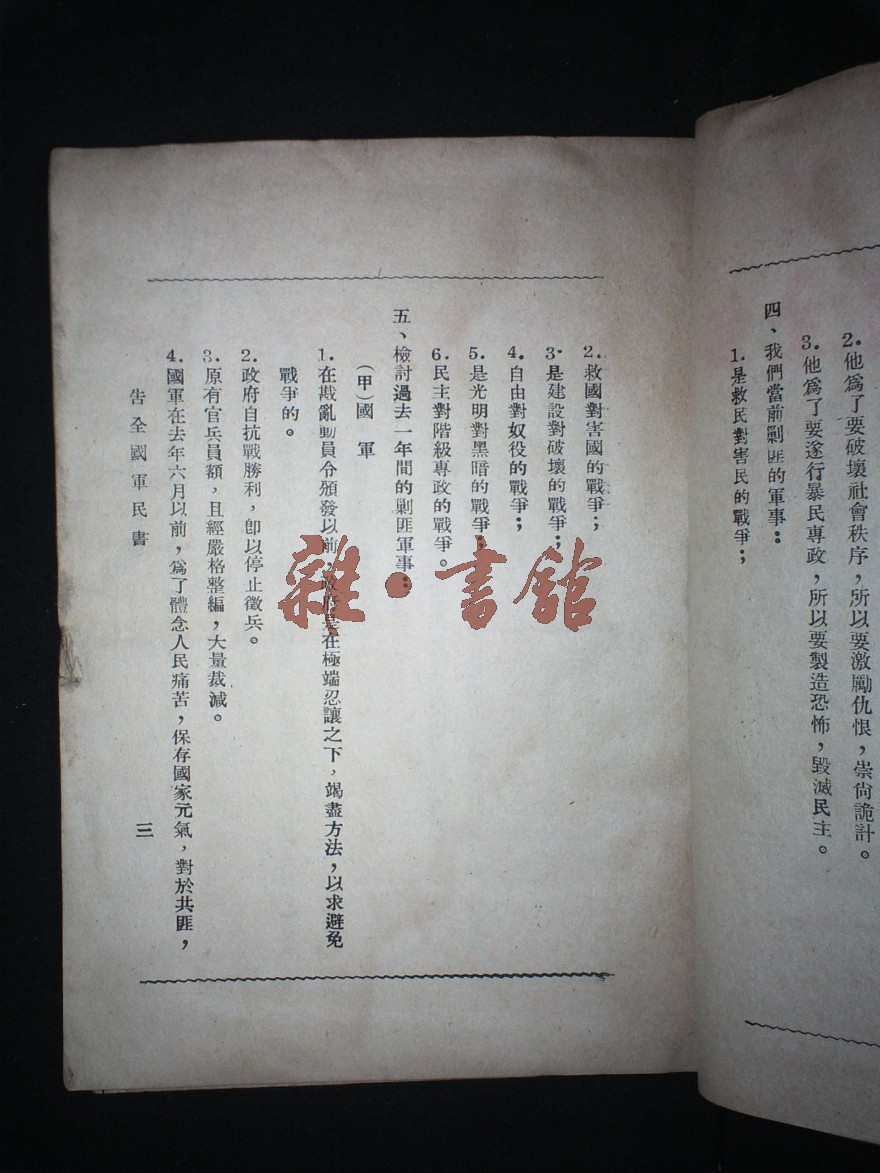 2.他爲了要破壞社會秩序，所以要激勵仇恨，崇尙詭計。
3.他爲了要遂行暴民專政，所以要製造恐怖，毀滅民主。
四、我們當前剿匪的軍事：
1.是救民對害民的戰爭；
2.救國對害國的戰爭；
3.是建設對破壞的戰爭；
4.自由對奴役的戰爭；
5.是光明對黑暗的戰爭；
6.民主對階級專政的戰爭。
五、檢討過去一年間的剿匪軍事：
（甲）國軍
1.在戡亂動員令頒發以前，政府是在極端忍讓之下，竭盡方法，以求避免
戰爭的。
2.政府自抗戰勝利，卽以停止徵兵。
3.原有官兵員額，且經嚴格整編，大量裁減。
4.國軍在去年六月以前，爲了體念人民痛苦，保存國家元氣，對於共匪，
告全國軍民書
三
雜·書館